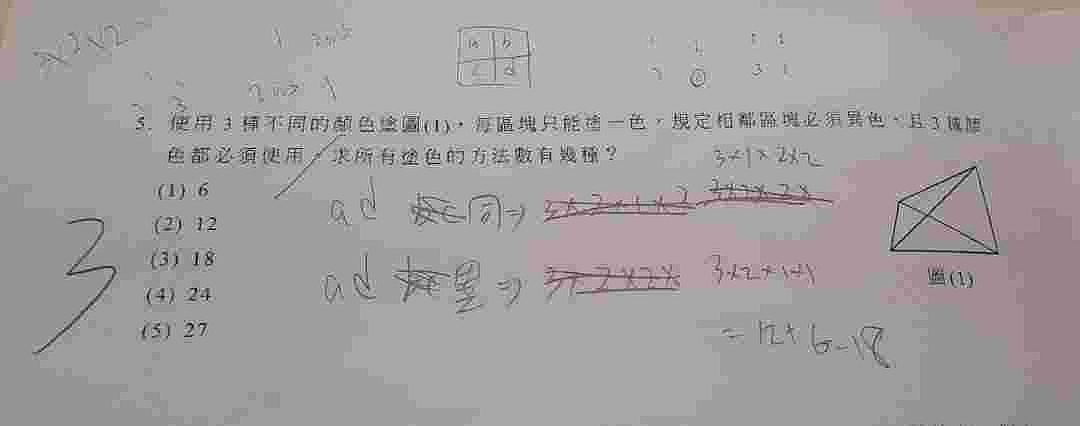 a b
c d
5. 使用 3 種不同的顏色塗圖(1)，每區塊只能塗一色，規定相鄰區塊必須異色，且 3 種顏
色都必須使用，求所有塗色的方法數有幾種？
3×1×2×2
(1) 6
ad 同⇒
(2) 12
(3) 18
3
ad 異⇒ 3×2×1×1
圖(1)
(4) 24
(5) 27
=12+6=18